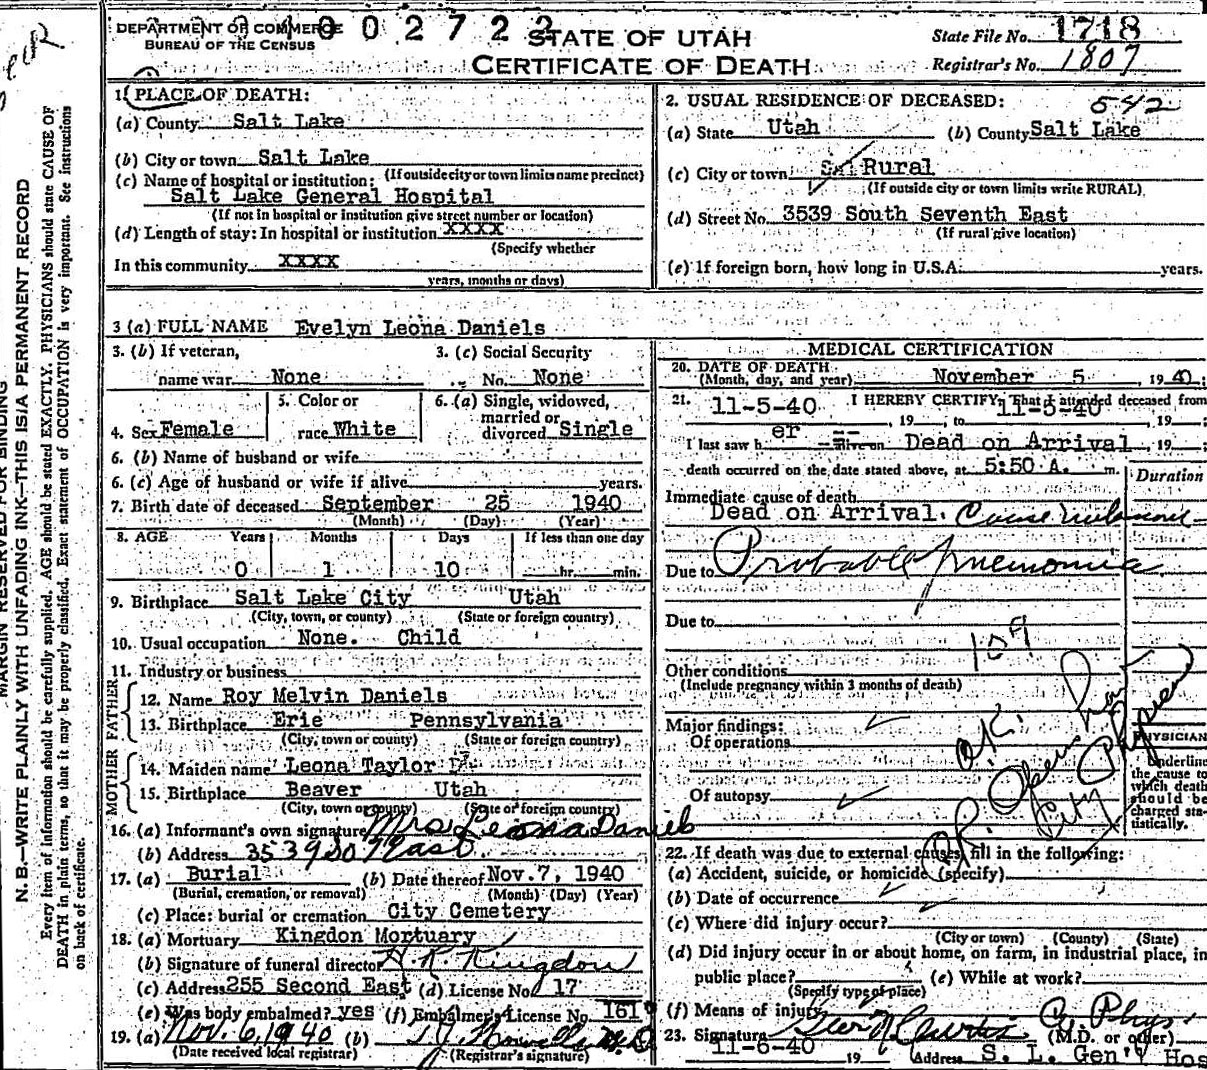 DEPARTMENT OF COMMERCE
BUREAU OF THE CENSUS
0 0 2 7 2 2
STATE OF UTAH
CERTIFICATE OF DEATH
State File No. 1718
Registrar's No. 1807
1. PLACE OF DEATH:
(a) County Salt Lake
(b) City or town Salt Lake
(If outside city or town limits name precinct)
(c) Name of hospital or institution:
Salt Lake General Hospital
(If not in hospital or institution give street number or location)
(d) Length of stay: In hospital or institution XXXX
(Specify whether
In this community XXXX
years, months or days)
2. USUAL RESIDENCE OF DECEASED: 542
(a) State Utah (b) County Salt Lake
(c) City or town Rural
(If outside city or town limits write RURAL)
(d) Street No. 3539 South Seventh East
(If rural give location)
(e) If foreign born, how long in U.S.A. years.
3 (a) FULL NAME Evelyn Leona Daniels
3. (b) If veteran,
name war None
3. (c) Social Security
No. None
4. Sex Female
5. Color or
race White
6. (a) Single, widowed,
married or
divorced Single
6. (b) Name of husband or wife
6. (c) Age of husband or wife if alive years.
7. Birth date of deceased September 25 1940
(Month) (Day) (Year)
8. AGE Years Months Days If less than one day
0 1 10 hr. min.
9. Birthplace Salt Lake City Utah
(City, town, or county) (State or foreign country)
10. Usual occupation None. Child
11. Industry or business
FATHER
12. Name Roy Melvin Daniels
13. Birthplace Erie Pennsylvania
(City, town or county) (State or foreign country)
MOTHER
14. Maiden name Leona Taylor
15. Birthplace Beaver Utah
(City, town or county) (State or foreign country)
16. (a) Informant's own signature Mrs Leona Daniels
(b) Address 3539 So 7 East.
17. (a) Burial (b) Date thereof Nov. 7, 1940
(Burial, cremation, or removal) (Month) (Day) (Year)
(c) Place: burial or cremation City Cemetery
18. (a) Mortuary Kingdon Mortuary
(b) Signature of funeral director H R Kingdon
(c) Address 255 Second East (d) License No. 17
(e) Was body embalmed? yes (f) Embalmer's License No. 161
19. (a) Nov. 6, 1940 (b)
(Date received local registrar) (Registrar's signature)
MEDICAL CERTIFICATION
20. DATE OF DEATH
(Month, day, and year) November 5, 1940;
21. I HEREBY CERTIFY, That I attended deceased from
11-5-40, 19 , to 11-5-40, 19 ;
I last saw her alive on Dead on Arrival, 19 ;
death occurred on the date stated above, at 5:50 A. m.
Duration
Immediate cause of death
Dead on Arrival. Cause unknown
Due to Probable pneumonia
Due to
109
Other conditions
(Include pregnancy within 3 months of death)
Major findings:
Of operations
Of autopsy
O.K.
City Physician
PHYSICIAN
Underline
the cause to
which death
should be
charged sta-
tistically.
22. If death was due to external causes, fill in the following:
(a) Accident, suicide, or homicide (specify)
(b) Date of occurrence
(c) Where did injury occur?
(City or town) (County) (State)
(d) Did injury occur in or about home, on farm, in industrial place, in
public place? (e) While at work?
(Specify type of place)
(f) Means of injury
23. Signature Curtis C. Phys.
(M.D. or other)
11-6-40 19 Address S. L. Gen'l Hos
MARGIN RESERVED FOR BINDING
N. B.—WRITE PLAINLY WITH UNFADING INK—THIS IS A PERMANENT RECORD
Every item of information should be carefully supplied. AGE should be stated EXACTLY. PHYSICIANS should state CAUSE OF
DEATH in plain terms, so that it may be properly classified. Exact statement of OCCUPATION is very important. See instructions
on back of certificate.